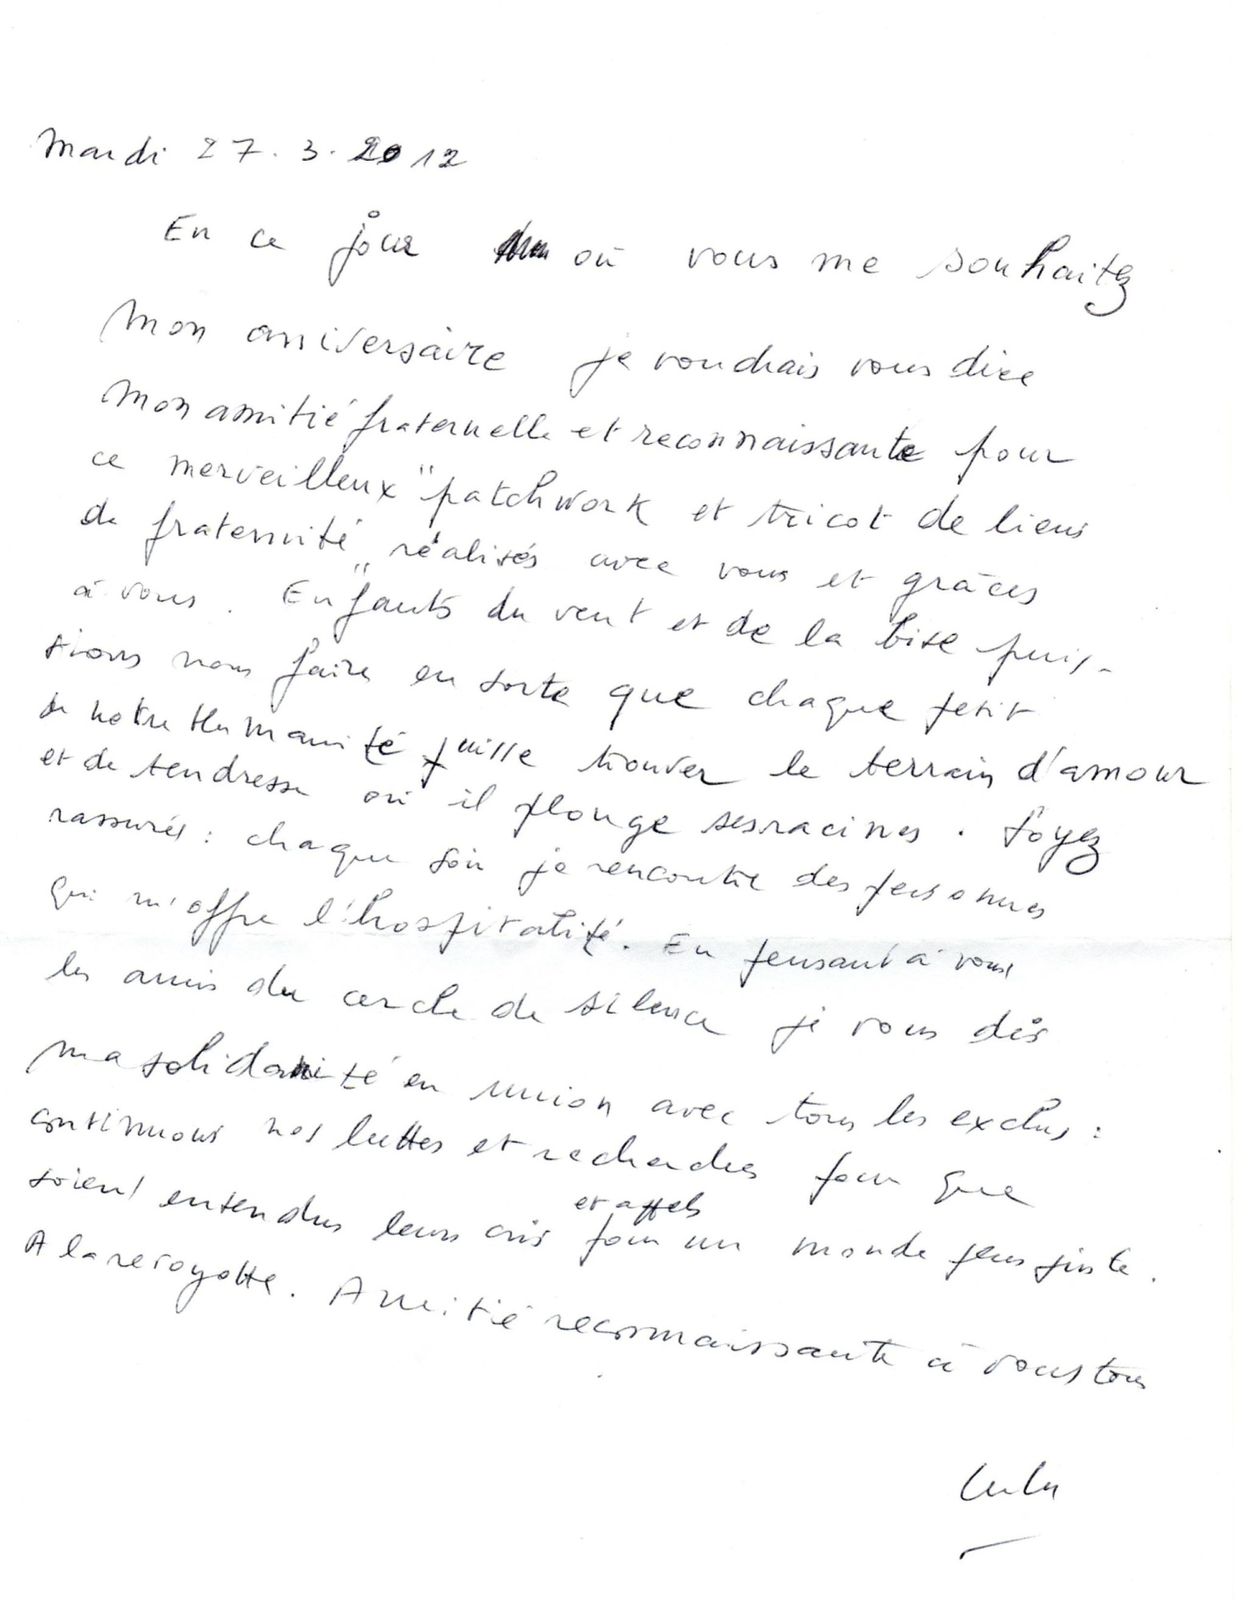 Mardi 27.3.2012
En ce jour où vous me souhaitez
mon anniversaire je voudrais vous dire
mon amitié fraternelle et reconnaissante pour
ce merveilleux "patchwork et tricot de liens
de fraternité" réalisés avec vous et grâces
à vous. Enfants du vent et de la bise puis-
sions nous faire en sorte que chaque petit
de notre Humanité puisse trouver le terrain d'amour
et de tendresse où il plonge ses racines. Soyez
rassurés : chaque soir je rencontre des personnes
qui m'offre l'hospitalité. En pensant à vous
les amis du cercle de silence je vous dis
ma solidarité en union avec tous les exclus :
continuons nos luttes et recherches pour que
soient entendus leurs cris et appels pour un monde plus juste.
A la revoyotte. Amitié reconnaissante à vous tous
Lulu